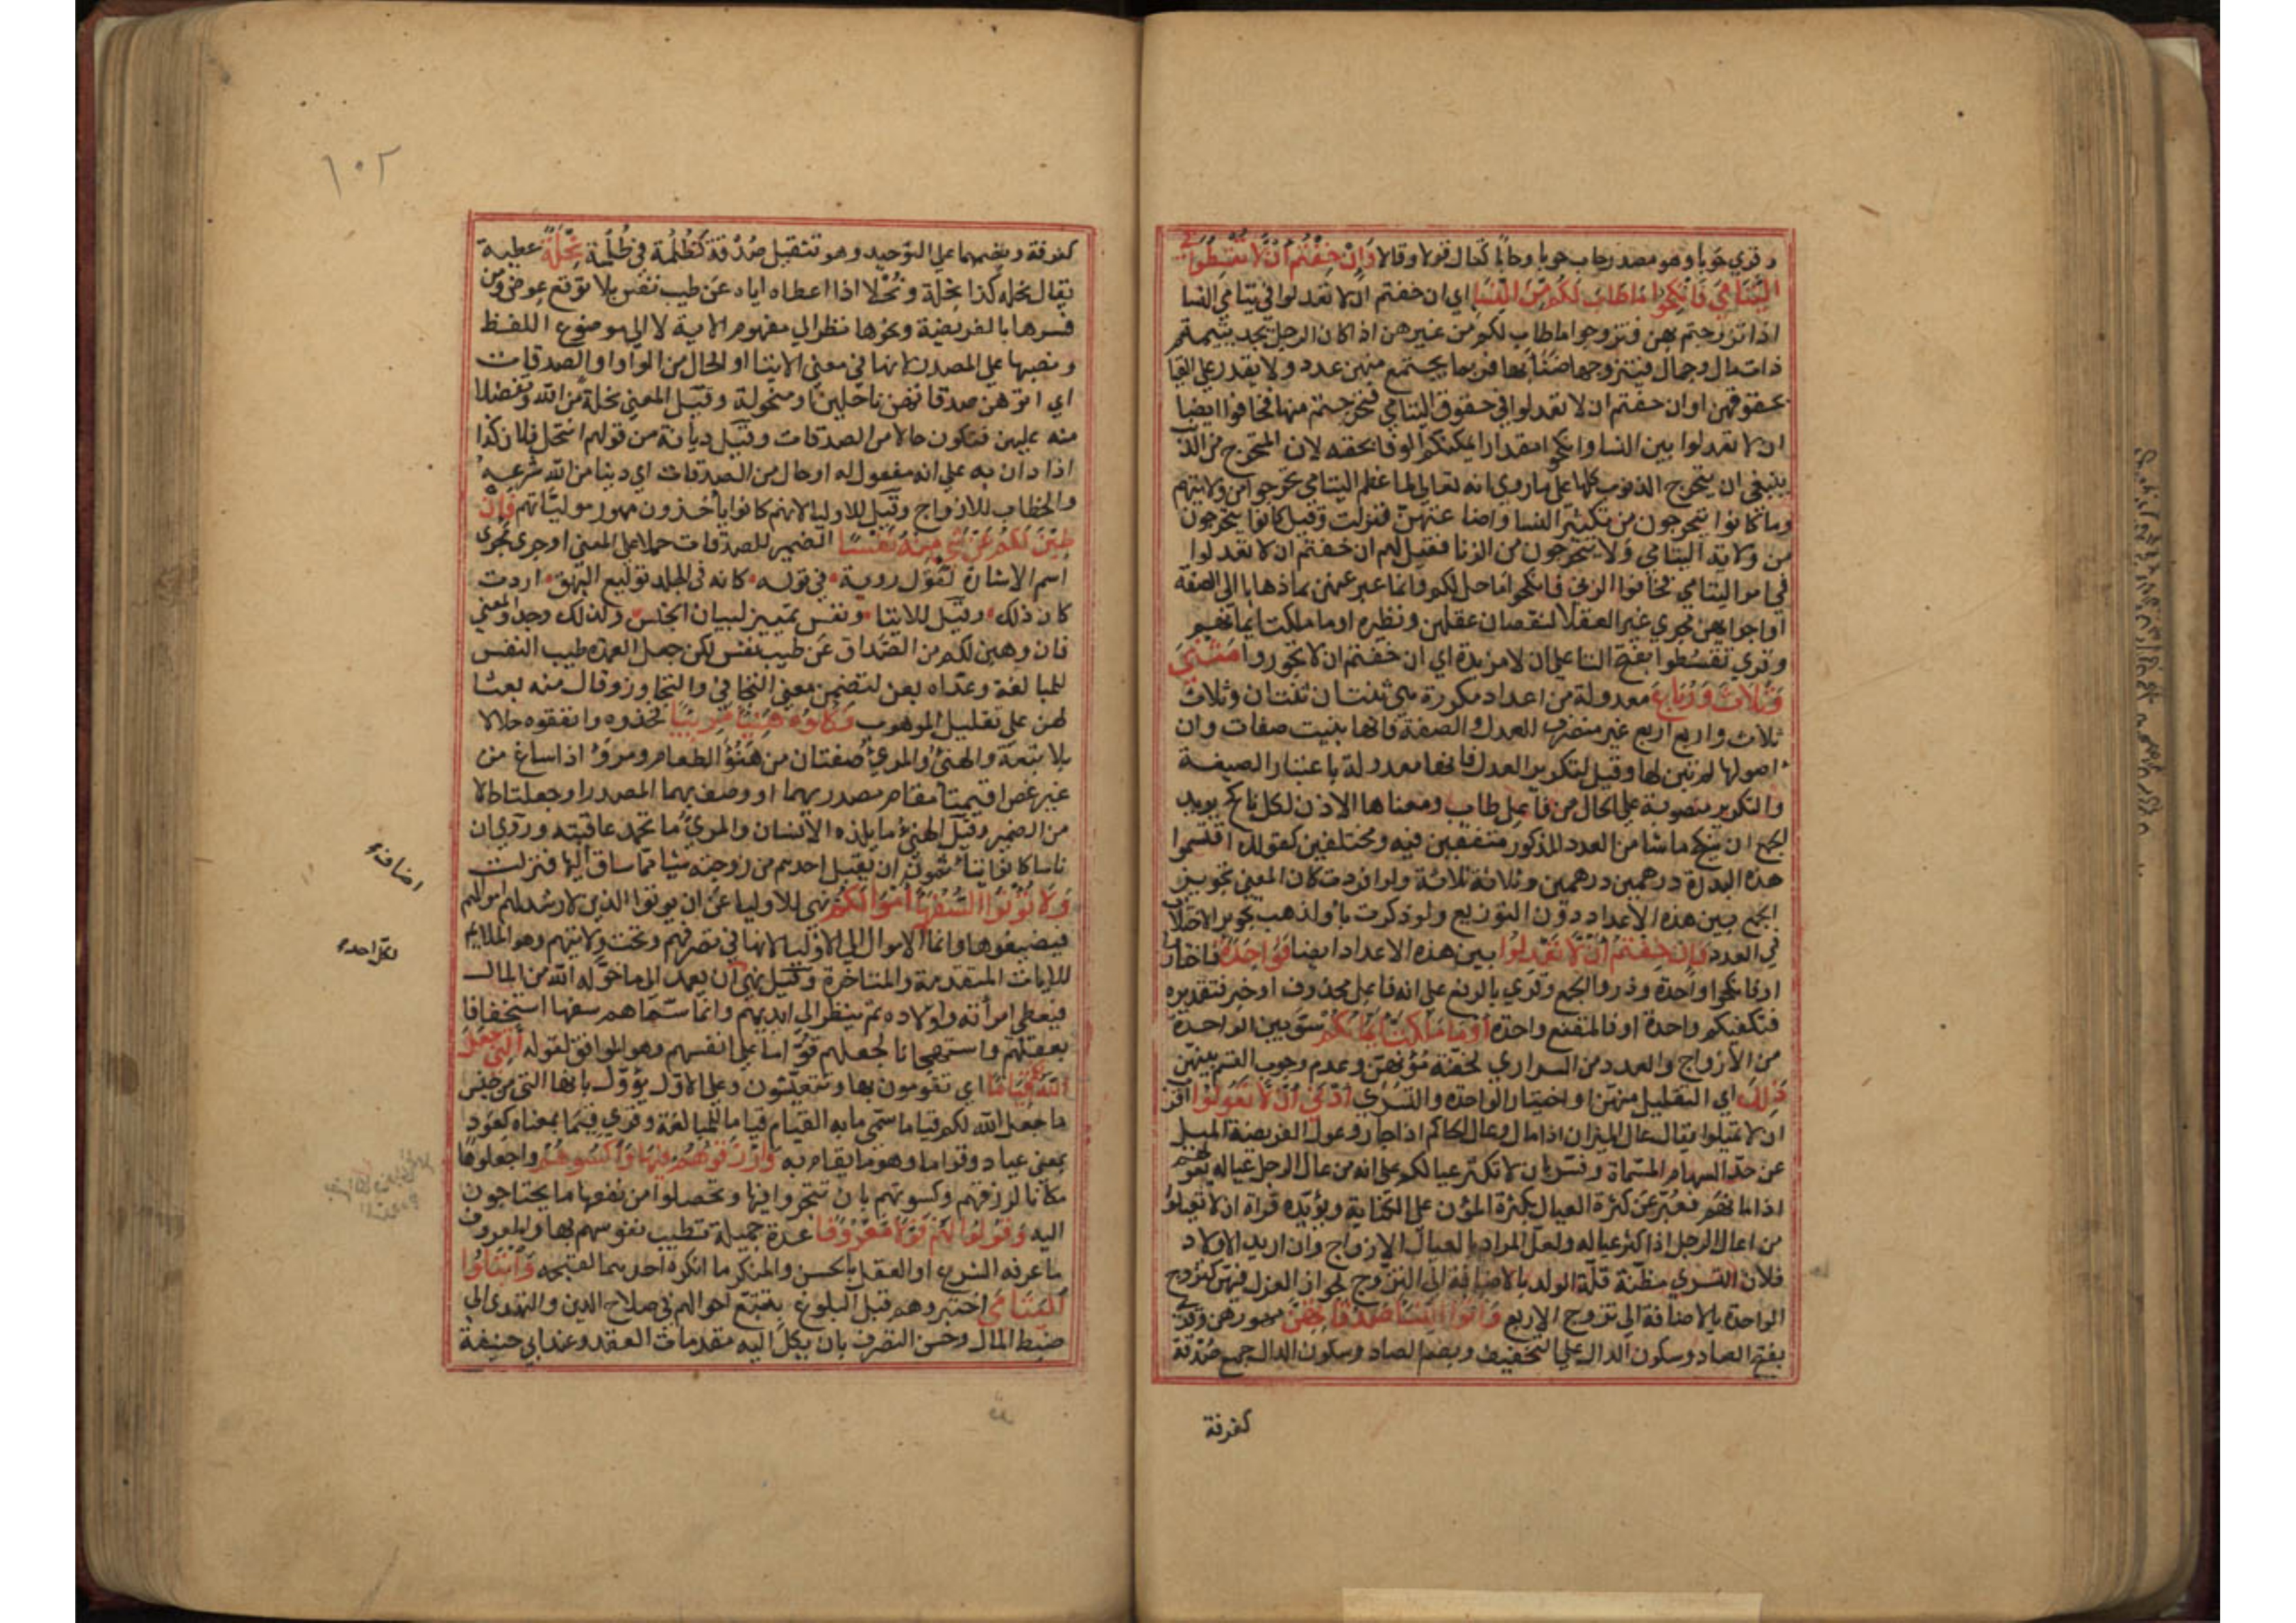 وقري حوبا وهو مصدر حاب حوبا وحابا كقال قولا وقالا وَإِنْ خِفْتُمْ أَنْ لَا تُقْسِطُوا في
اليَتَامَى فَانْكِحُوا مَا طَابَ لَكُمْ مِنَ النِّسَا اي ان خفتم ان لا تعدلوا في يتامي النسا
اذا تزوجتم بهن فتزوجوا ما طاب لكم من غيرهن اذ كان الرجل يجد يتيمة
ذات مال وجمال فيتزوجها ضنا بها فربما يجتمع منهن عدد ولا يقدر علي القيا
بحقوقهن او ان خفتم ان لا تعدلوا في حقوق اليتامي فتحرجتم منها فخافوا ايضا
ان لا تعدلوا بين النسا وانكحوا مقدارا يمكنكم الوفا بحقه لان المتحرج من الذنب
ينبغي ان يتحرج الذنوب كلها علي ما روي انه تعالي لما عظم اليتامي تحرجوا من ولايتهم
وما كانوا يتحرجون من تكثير النسا واضاعتهن فنزلت وقيل كانوا يتحرجون
من ولاية اليتامي ولا يتحرجون من الزنا فقيل لهم ان خفتم ان لا تعدلوا
في امر اليتامي فخافوا الزني فانكحوا ما حل لكم وانما عبر عنهن بما ذهابا الي الصفة
او اجراهن مجري غير العقلا لنقصان عقلهن ونظيره او ما ملكت ايمانهم
وقري تقسطوا بفتح التا علي ان لا مزيدة اي ان خفتم ان لا تجوروا مَثْنَى
وَثُلَاثَ وَرُبَاعَ معدولة من اعداد مكررة هي ثنتان ثنتان وثلاث
ثلاث واربع اربع غير منصرف للعدل والصفة فانها بنيت صفات وان
اصولها لم تبن لها وقيل لتكرير العدل فانها معدولة باعتبار الصيغة
والتكرير منصوبة علي الحال من فاعل طاب ومعناها الاذن لكل ناكح يريد
الجمع ان ينكح ما شا من العدد المذكور متفقين فيه ومختلفين كقولك اقتسموا
هذه البدرة درهمين درهمين وثلاثة ثلاثة ولو افردت كان المعني تجويز
الجمع بين هذه الاعداد دون التوزيع ولو ذكرت باو لذهب تجويز الاختلاف
في العدد فَإِنْ خِفْتُمْ أَنْ لَا تَعْدِلُوا بين هذه الاعداد ايضا فَوَاحِدَةً فاختاروا
او فانكحوا واحدة وذروا الجمع وقري بالرفع علي انه فاعل محذوف او خبر فتقديره
فتكفيكم واحدة او فالمقنع واحدة أَوْ مَا مَلَكَتْ أَيْمَانُكُمْ سوي بين الواحدة
من الازواج والعدد من السراري لخفة مؤنهن وعدم وجوب القسم بينهن
ذَلِكَ اي التقليل منهن او اختيار الواحدة والتسري أَدْنَى أَنْ لَا تَعُولُوا اقرب
ان لا تميلوا يقال عال الميزان اذا مال وعال الحاكم اذا جار وعول الفريضة الميل
عن حد السهام المسماة وفسر بان لا تكثر عيالكم علي انه من عال الرجل عياله يعولهم
اذا مانهم فعبر عن كثرة العيال بكثرة المؤن علي الكناية ويؤيده قراة ان لا تعيلوا
من اعال الرجل اذا كثر عياله ولعل المراد بالعيال الازواج وان اريد الاولاد
فلان التسري مظنة قلة الولد بالاضافة الي التزوج لجواز العزل فيهن كتزوج
الواحدة بالاضافة الي تزوج الاربع وَآتُوا النِّسَا صَدُقَاتِهِنَّ مهورهن وقري
بفتح الصاد وسكون الدال علي التخفيف وبضم الصاد وسكون الدال جمع صُدْقة
كغرفة
١٠٢
كغرفة وبضمهما علي التوحيد وهو تثقيل صُدْقة كظُلُمة في ظُلْمة نِحْلَةً عطية
يقال نحله كذا نحلة ونُحْلا اذا اعطاه اياه عن طيب نفس بلا توقع عوض ومن
فسرها بالفريضة ونحوها نظر الي مفهوم الاية لا الي موضوع اللفظ
ونصبها علي المصدر لانها في معني الايتا او الحال من الواو او الصدقات
اي اتوهن صدقاتهن ناحلين او منحولة وقيل المعني نحلة من الله وتفضلا
منه عليهن فتكون حالا من الصدقات وقيل ديانة من قولهم انتحل فلان كذا
اذا دان به علي انه مفعول له او حال من الصدقات اي دينا من الله شرعه
والخطاب للازواج وقيل للاوليا لانهم كانوا يأخذون مهور مولياتهم فَإِنْ
طِبْنَ لَكُمْ عَنْ شَيْءٍ مِنْهُ نَفْسًا الضمير للصدقات حملا علي المعني او جري مجري
اسم الاشارة كقول روبة في قوله كانه في الجلد توليع البهق اردت
كان ذلك وقيل للايتا ونفس تمييز لبيان الجنس ولذلك وحد والمعني
فان وهبن لكم من الصداق عن طيب نفس لكن جعل العمدة طيب النفس
للمبالغة وعداه بعن لتضمن معني التجافي والتجاوز وقال منه بعثا
لهن علي تقليل الموهوب فَكُلُوهُ هَنِيئًا مَرِيئًا فخذوه وانفقوه حلالا
بلا تبعة والهنئ والمرئ صفتان من هنؤ الطعام ومرؤ اذا ساغ من
غير غص اقيمتا مقام مصدريهما او وصف بهما المصدر او جعلتا حالا
من الضمير وقيل الهنئ ما يلذه الانسان والمرئ ما تحمد عاقبته وروي ان
ناسا كانوا يتأثمون ان يقبل احدهم من زوجته شيا مما ساق اليها فنزلت
وَلَا تُؤْتُوا السُّفَهَا أَمْوَالَكُمْ نهي للاوليا عن ان يوتوا الذين لا رشد لهم اموالهم
فيضيعوها وانما الاموال الي الاوليا لانها في تصرفهم وتحت ولايتهم وهو الملايم
للايات المتقدمة والمتاخرة وقيل نهي ان يعمد الي ما خوله الله من المال
فيعطي امرأته واولاده ثم ينظر الي ايديهم وانما سماهم سفها استخفافا
بعقلهم واستهجانا لجعلهم قواما علي انفسهم وهو الموافق لقوله الَّتِي جَعَلَ
اللهُ لَكُمْ قِيَامًا اي تقومون بها وتتعيشون وعلي الاول يؤول بانها التي من جنس
ما جعل الله لكم قياما سمي ما به القيام قياما للمبالغة وقري قيما بمعناه كعوذ
بمعني عياذ وقواما وهو ما يقام به وَارْزُقُوهُمْ فِيهَا وَاكْسُوهُمْ واجعلوها
مكانا لرزقهم وكسوتهم بان تتجروا فيها وتحصلوا من نفعها ما يحتاجون
اليه وَقُولُوا لَهُمْ قَوْلًا مَعْرُوفًا عدة جميلة تطيب نفوسهم بها والمعروف
ما عرفه الشرع او العقل بالحسن والمنكر ما انكره احدهما لقبحه وَابْتَلُوا
الْيَتَامَى اختبروهم قبل البلوغ بتتبع احوالهم في صلاح الدين والتهدي الي
ضبط المال وحسن التصرف بان يكل اليه مقدمات العقد وعند ابي حنيفة
اضافة
لكل احد